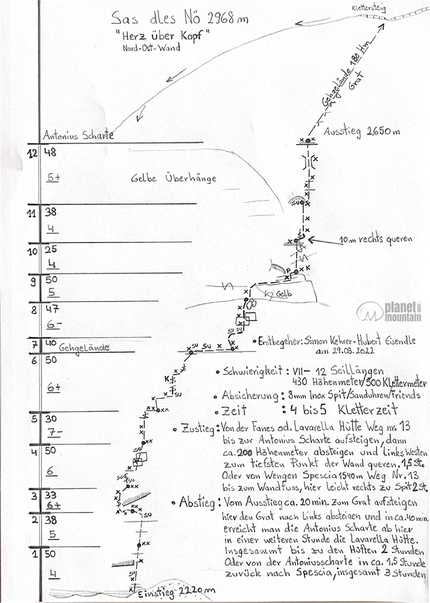 Klettersteig
Sas dles Nö 2968m
"Herz über Kopf"
Nord-Ost-Wand
Gehgelände 180 Hm
Grat
Antonius Scharte
Ausstieg 2650m
12 48
5+
Gelbe Überhänge
11 38
4
10 25
4
10m rechts queren
9 50
5
Gelb
8 47
6-
planet
mountain
7 40 Gehgelände
• Erstbegeher: Simon Kehrer-Hubert Eisendle
am 29.08.2022
6 50
6+
• Schwierigkeit: VII- 12 Seillängen
430 Höhenmeter/500 Klettermeter
• Absicherung: 8mm Inox Spit/Sanduhren/Friends
• Zeit : 4 bis 5 Kletterzeit
5 30
7-
• Zustieg: Von der Fanes od. Lavarella Hütte Weg nr. 13
bis zur Antonius Scharte aufsteigen, dann
ca. 200 Höhenmeter absteigen und Links Westen
zum tiefsten Punkt der Wand queren, 1,5 St.
Oder von Wengen Spescia 1540m Weg Nr. 13
bis zum Wandfuss, hier leicht rechts zu Spit 2 St.
4 50
6
3 33
6+
2 38
5
• Abstieg: Vom Ausstieg ca. 20 min. zum Grat aufsteigen
hier den Grat nach Links absteigen und in ca. 40 min.
erreicht man die Antonius Scharte ab hier
in einer weiteren Stunde die Lavarella Hütte.
Insgesammt bis zu den Hütten 2 Stunden
Oder von der Antoniusscharte in ca. 1,5 Stunde
zurück nach Spescia, insgesamt 3 Stunden
1 50
4
Einstieg 2220m